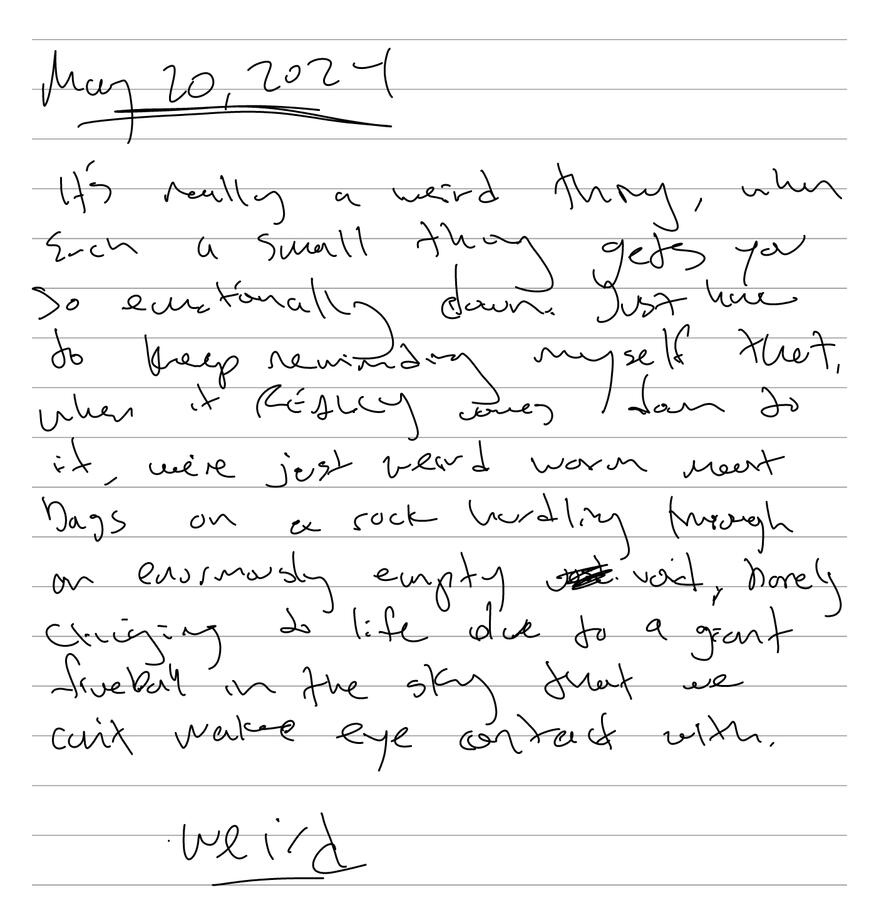 May 20, 2024
It's really a weird thing, when
such a small thing gets you
so emotionally down. Just have
to keep reminding myself that,
when it REALLY comes down to
it, we're just weird worm meat
bags on a rock hurdling through
an enormously empty void, barely
clinging to life due to a giant
fireball in the sky that we
can't make eye contact with.
weird